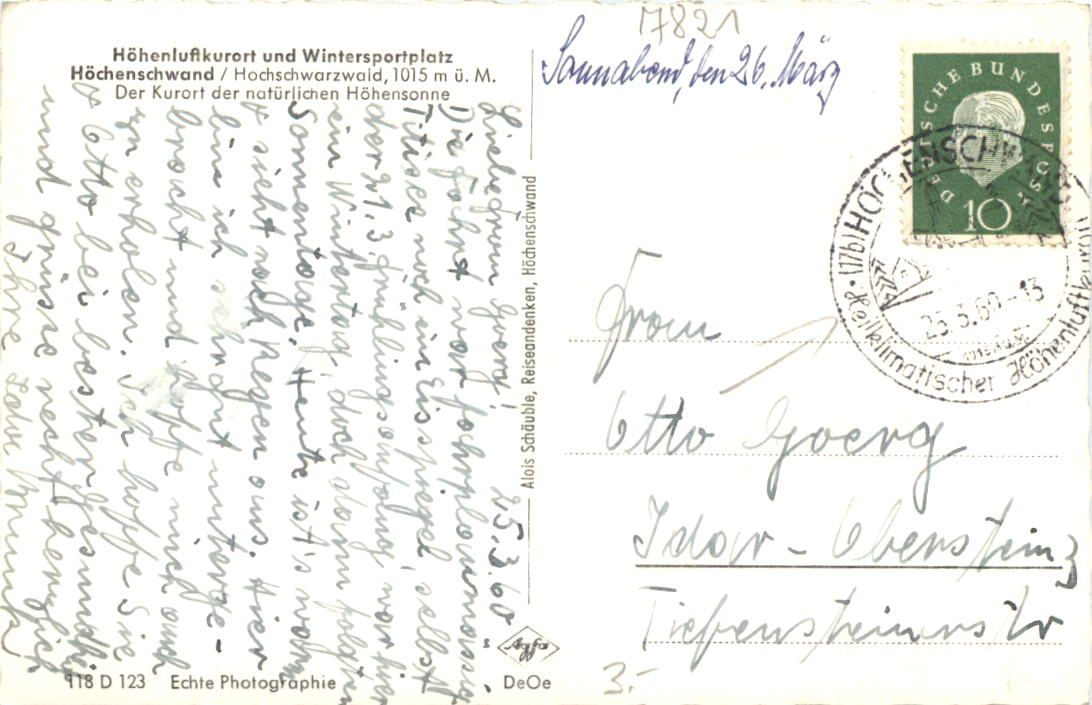 7821
Sonnabend, den 26. März
Höhenluftkurort und Wintersportplatz
Höchenschwand / Hochschwarzwald, 1015 m ü. M.
Der Kurort der natürlichen Höhensonne
Liebe Frau Goerg! 25.3.60.
Die Fahrt war fahrplanmässig,
Titisee noch ein Eisspiegel, selbst
der 21.3. Frühlingsanfang, war hier
ein Wintertag, doch dann folgten
Sonnentage. Heute ist's warm
u sieht nach Regen aus. Hier
bin ich sehr gut unterge-
bracht und hoffe mich auch
zu erholen. Ich hoffe Sie
u Otto bei bester Gesundheit
und grüsse recht herzlich
Ihre
Alois Schäuble, Reiseandenken, Höchenschwand
DEUTSCHE BUNDESPOST
10
(17b) HÖCHENSCHWAND
23.3.60-13
Heilklimatischer Höhenluftkurort
Frau
Otto Goerg
Idar-Oberstein 3
Tiefensteinerstr
118 D 123 Echte Photographie
Agfa
DeOe
3.-